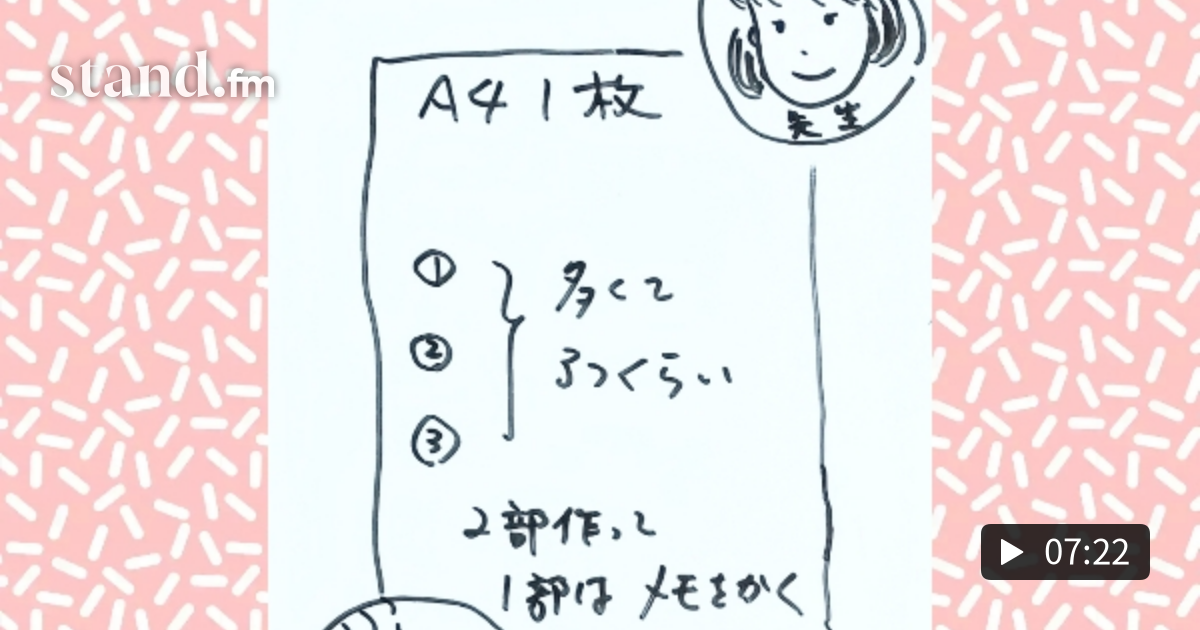 stand.fm
A4 1枚
先生
①
②
③
多くて
3つくらい
2部作って
1部はメモをかく
07:22